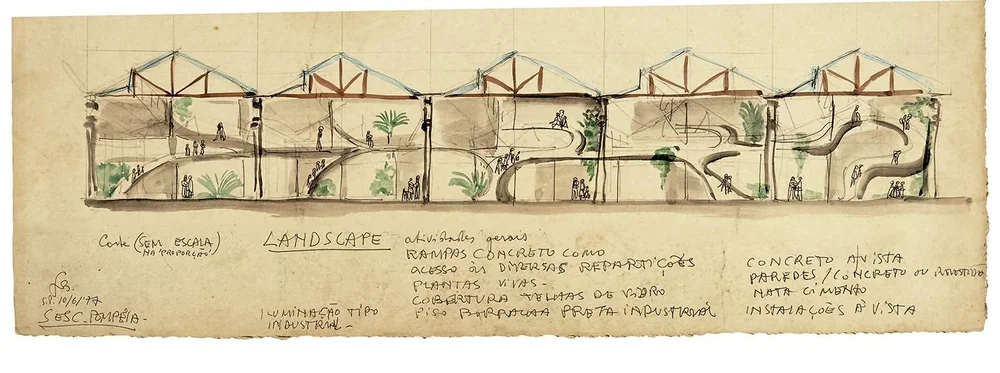 Corte (SEM ESCALA)
NA 'PROPORÇÃO'
LANDSCAPE
atividades gerais
RAMPAS CONCRETO COMO
ACESSO ÀS DIVERSAS REPARTIÇÕES
PLANTAS VIVAS-
COBERTURA TELHAS DE VIDRO
PISO BORRACHA PRETA INDUSTRIAL
ILUMINAÇÃO TIPO
INDUSTRIAL-
CONCRETO À VISTA
PAREDES/CONCRETO OU REVESTIDO
NATA CIMENTO
INSTALAÇÕES À VISTA
S.P. 10/6/77
SESC. POMPÉIA-